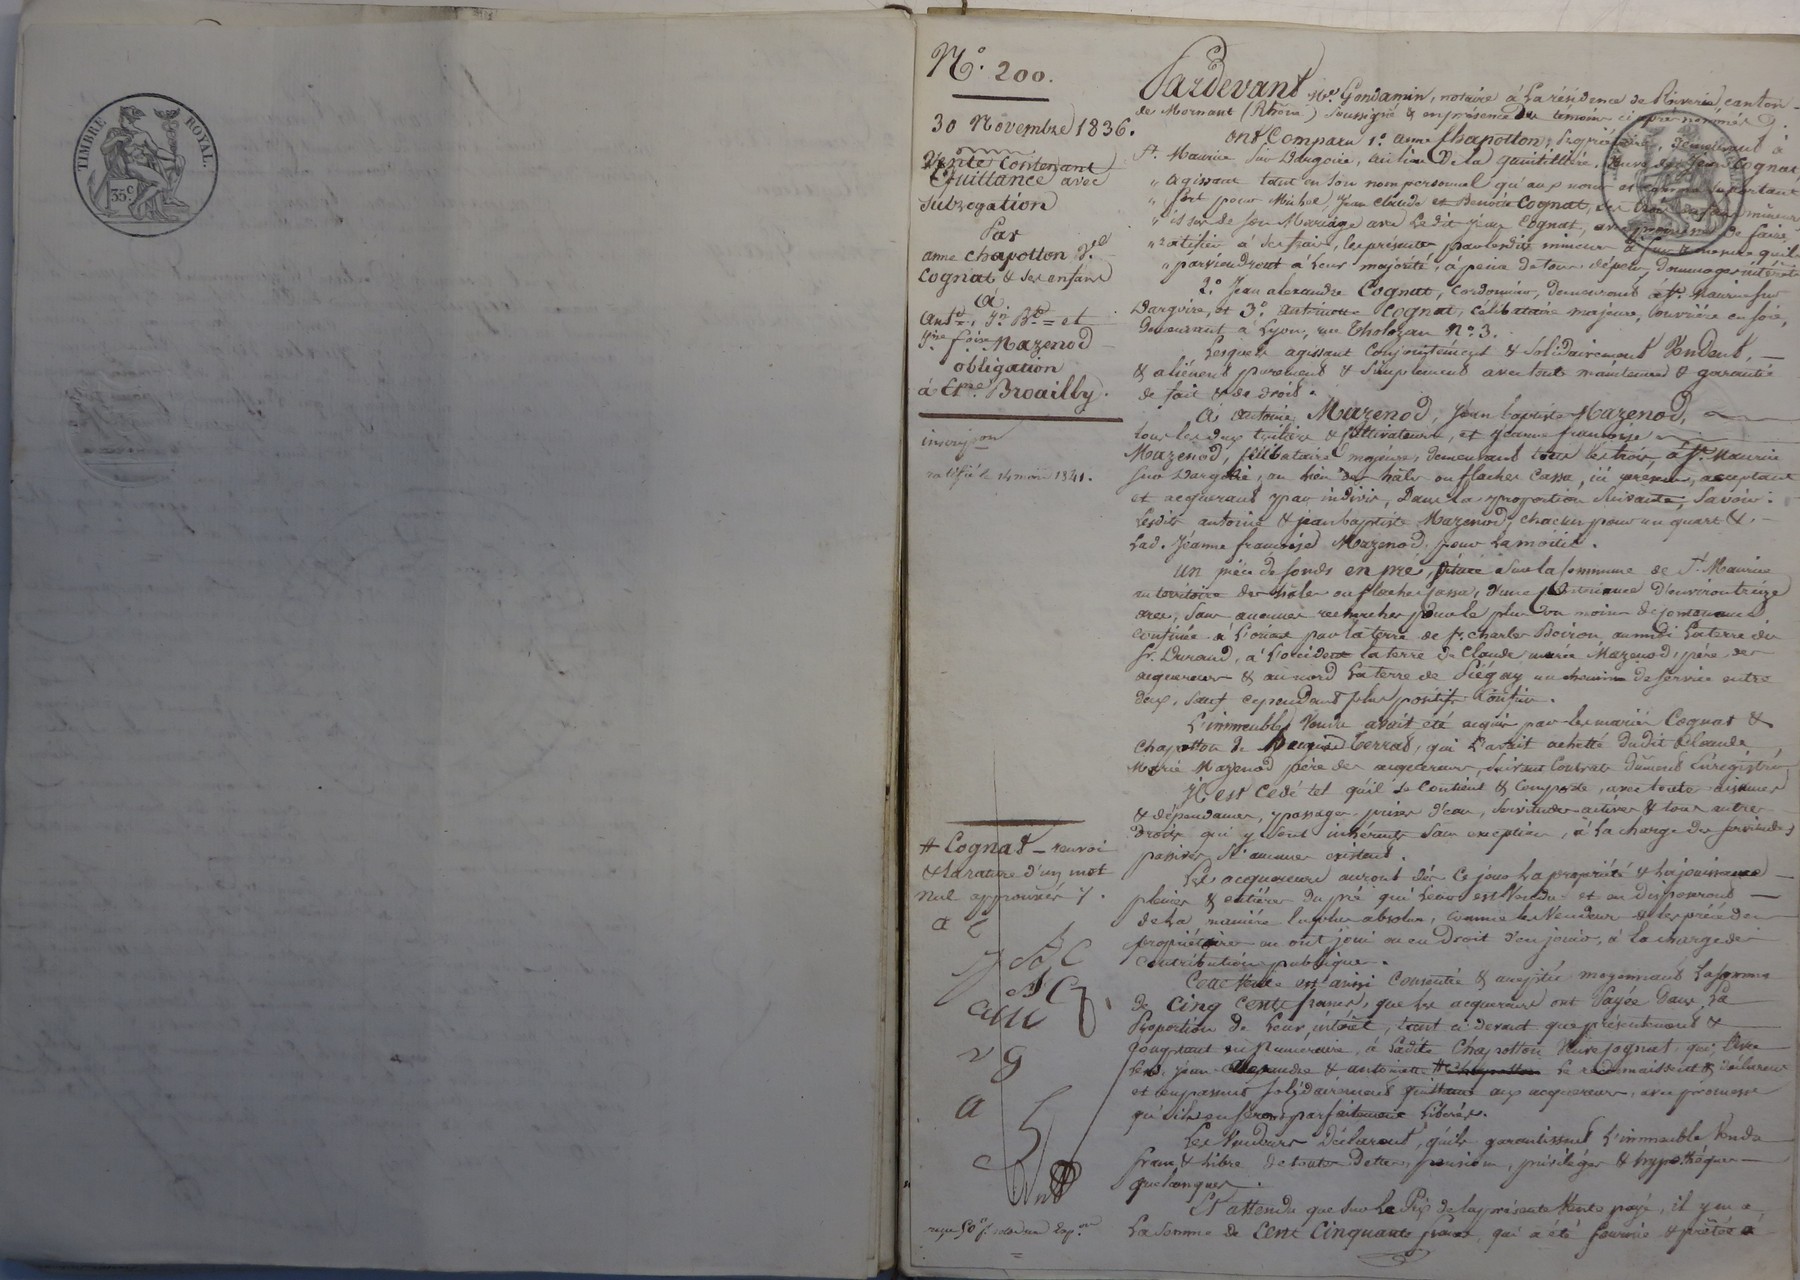 TIMBRE ROYAL.
35 c.
N° 200.
30 Novembre 1836.
Vente Contenant
Quittance avec
Subrogation
Par
anne Chapotton Ve
Cognat & ses enfans
à
Ant.e, Jn Bte et
Jne foise Mazenod
obligation
à Brouilly.
inscripon
ratifié le 14 mai 1841.
# Cognat _ renvoi
& la rature d'un mot
nul approuvés
Pardevant Me Gondamin, notaire à la résidence de Riverie canton
de Mornant (Rhône) soussigné & en présence des témoins ci après nommés
ont Comparu 1° anne Chapotton, propriétaire, demeurant à
St. Maurice sur Dargoire, au lieu de la, veuve de Jean Cognat,
" agissant tant en son nom personnel qu'aux noms et comme se portant
" fort pour Michel, Jean Claude et Benoite Cognat, ses trois enfans mineurs
" issus de son Mariage avec ledit Jean Cognat, avec promesse de faire
" ratifier à ses frais, les présentes par lesdits mineurs à fur & mesure qu'ils
" parviendront à leur majorité, à peine de tous dépens, dommages intérêts
2° Jean alexandre Cognat, cordonnier, demeurant à St. Maurice sur
Dargoire, et 3° antoinette Cognat, célibataire majeure, ouvrière en soie,
demeurant à Lyon, rue Tholozan N° 3.
Lesquels agissant conjointement & solidairement Vendent,
& aliènent purement & simplement avec toute maintenue & garantie
de fait & de droit.
à antoine Mazenod, Jean baptiste Mazenod,
tous les deux tuiliers & cultivateurs, et Jeanne françoise
Mazenod, célibataire majeure, demeurant tous les trois à St. Maurice
sur Dargoire, au lieu des hâles ou flacher Cassa, ici présents, acceptant
et acquerant par indivis, dans la proportion suivante, savoir:
Lesdits antoine & jean baptiste Mazenod, chacun pour un quart &
Lad. Jeanne françoise Mazenod, pour la moitié.
Un pièce de fonds en pré, située sur la commune de St. Maurice
au territoire des hâles ou flacher Cassa, d'une contenance d'environ treize
ares, sans aucunes recherches pour le plus ou moins de contenance
confinée à l'orient par la terre de sr. Charles Boiron, au midi la terre du
sr. Durand, à l'occident la terre de Claude marie Mazenod, père des
acquereurs & au nord la terre de Piégay un chemin de service entre
deux, sauf cependant plus positifs confins.
L'immeuble Vendu avait été acquis par les mariés Cognat &
Chapotton de Terrat, qui l'avait achetté dudit Claude
Marie Mazenod père des acquereurs, suivant contrats dûment Enregistrés,
Il est Cédé tel qu'il se Contient & Comporte, avec toutes aisances
& dépendances, passages, prises d'eau, servitudes actives & tous autres
droits qui y sont inhérents sans exception, à la charge des servitudes
passives, si aucunes existent.
Les acquereurs auront dès ce jour la propriété & la jouissance
pleines & entières du pré qui leur est Vendu et en disposeront
de la manière la plus absolue, comme les Vendeurs & les précédens
propriétaires en ont joui ou eu droit d'en jouir, à la charge des
contributions publiques.
Cette Vente est ainsi Consentie & acceptée moyennant la somme
de Cinq Cents francs, que les acquereurs ont Payée Dans la
Proportion de leur intérêt, tant ci devant que présentement &
comptant en Numéraire, à ladite Chapotton Veuve Cognat, qui,
led. jean alexandre & antoinette # le reconnaissent & déclarent
et en passent solidairement quittance aux acquereurs, avec promesse
qu'ils en seront parfaitement Libérés.
Les Vendeurs déclarent, qu'ils garantissent l'immeuble Vendu
franc & libre de toutes dettes, pensions, priviléges & hypothèques
quelconques.
Et attendu que sur le Prix de la présente Vente payé, il y en a
la somme de Cent Cinquante francs, qui a été fournie & prêtée à